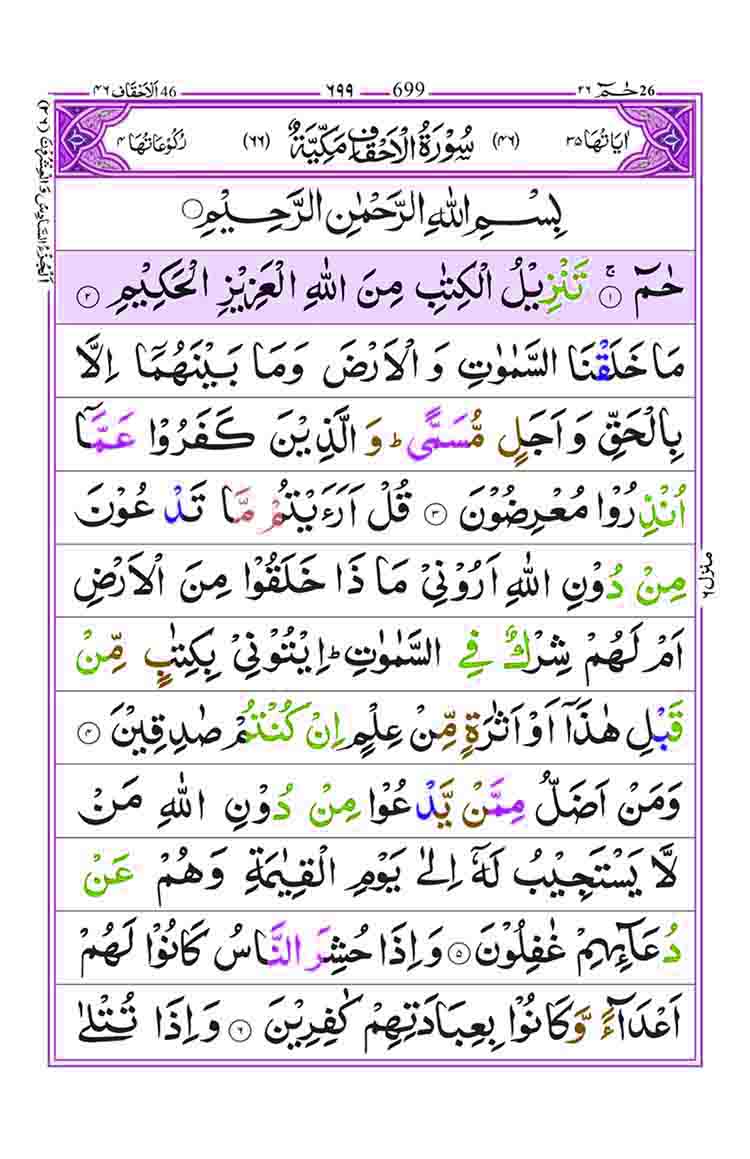 26 حٰمٓ ٢٦ — 699 — ٦٩٩ — 46 اَلْاَحْقَاف ٤٦
اٰيَاتُهَا ٣٥ (٤٦) سُوْرَةُ الْاَحْقَافِ مَكِّيَّةٌ (٦٦) رُكُوْعَاتُهَا ٤
بِسْمِ اللّٰهِ الرَّحْمٰنِ الرَّحِيْمِ ۝
حٰمٓ ۝١ۚ تَنْزِيْلُ الْكِتٰبِ مِنَ اللّٰهِ الْعَزِيْزِ الْحَكِيْمِ ۝٢
مَا خَلَقْنَا السَّمٰوٰتِ وَ الْاَرْضَ وَمَا بَيْنَهُمَاۤ اِلَّا
بِالْحَقِّ وَ اَجَلٍ مُّسَمًّىؕ وَ الَّذِيْنَ كَفَرُوْا عَمَّاۤ
اُنْذِرُوْا مُعْرِضُوْنَ ۝٣ قُلْ اَرَءَيْتُمْ مَّا تَدْعُوْنَ
مِنْ دُوْنِ اللّٰهِ اَرُوْنِيْ مَا ذَا خَلَقُوْا مِنَ الْاَرْضِ
اَمْ لَهُمْ شِرْكٌ فِي السَّمٰوٰتِؕ اِيْتُوْنِيْ بِكِتٰبٍ مِّنْ
قَبْلِ هٰذَاۤ اَوْ اَثٰرَةٍ مِّنْ عِلْمٍ اِنْ كُنْتُمْ صٰدِقِيْنَ ۝٤
وَمَنْ اَضَلُّ مِمَّنْ يَّدْعُوْا مِنْ دُوْنِ اللّٰهِ مَنْ
لَّا يَسْتَجِيْبُ لَهٗۤ اِلٰى يَوْمِ الْقِيٰمَةِ وَهُمْ عَنْ
دُعَآئِهِمْ غٰفِلُوْنَ ۝٥ وَ اِذَا حُشِرَ النَّاسُ كَانُوْا لَهُمْ
اَعْدَآءً وَّ كَانُوْا بِعِبَادَتِهِمْ كٰفِرِيْنَ ۝٦ وَ اِذَا تُتْلٰى
اَلْجُزْءُ السَّادِسُ وَ الْعِشْرُوْنَ (٢٦)
منزل ٦